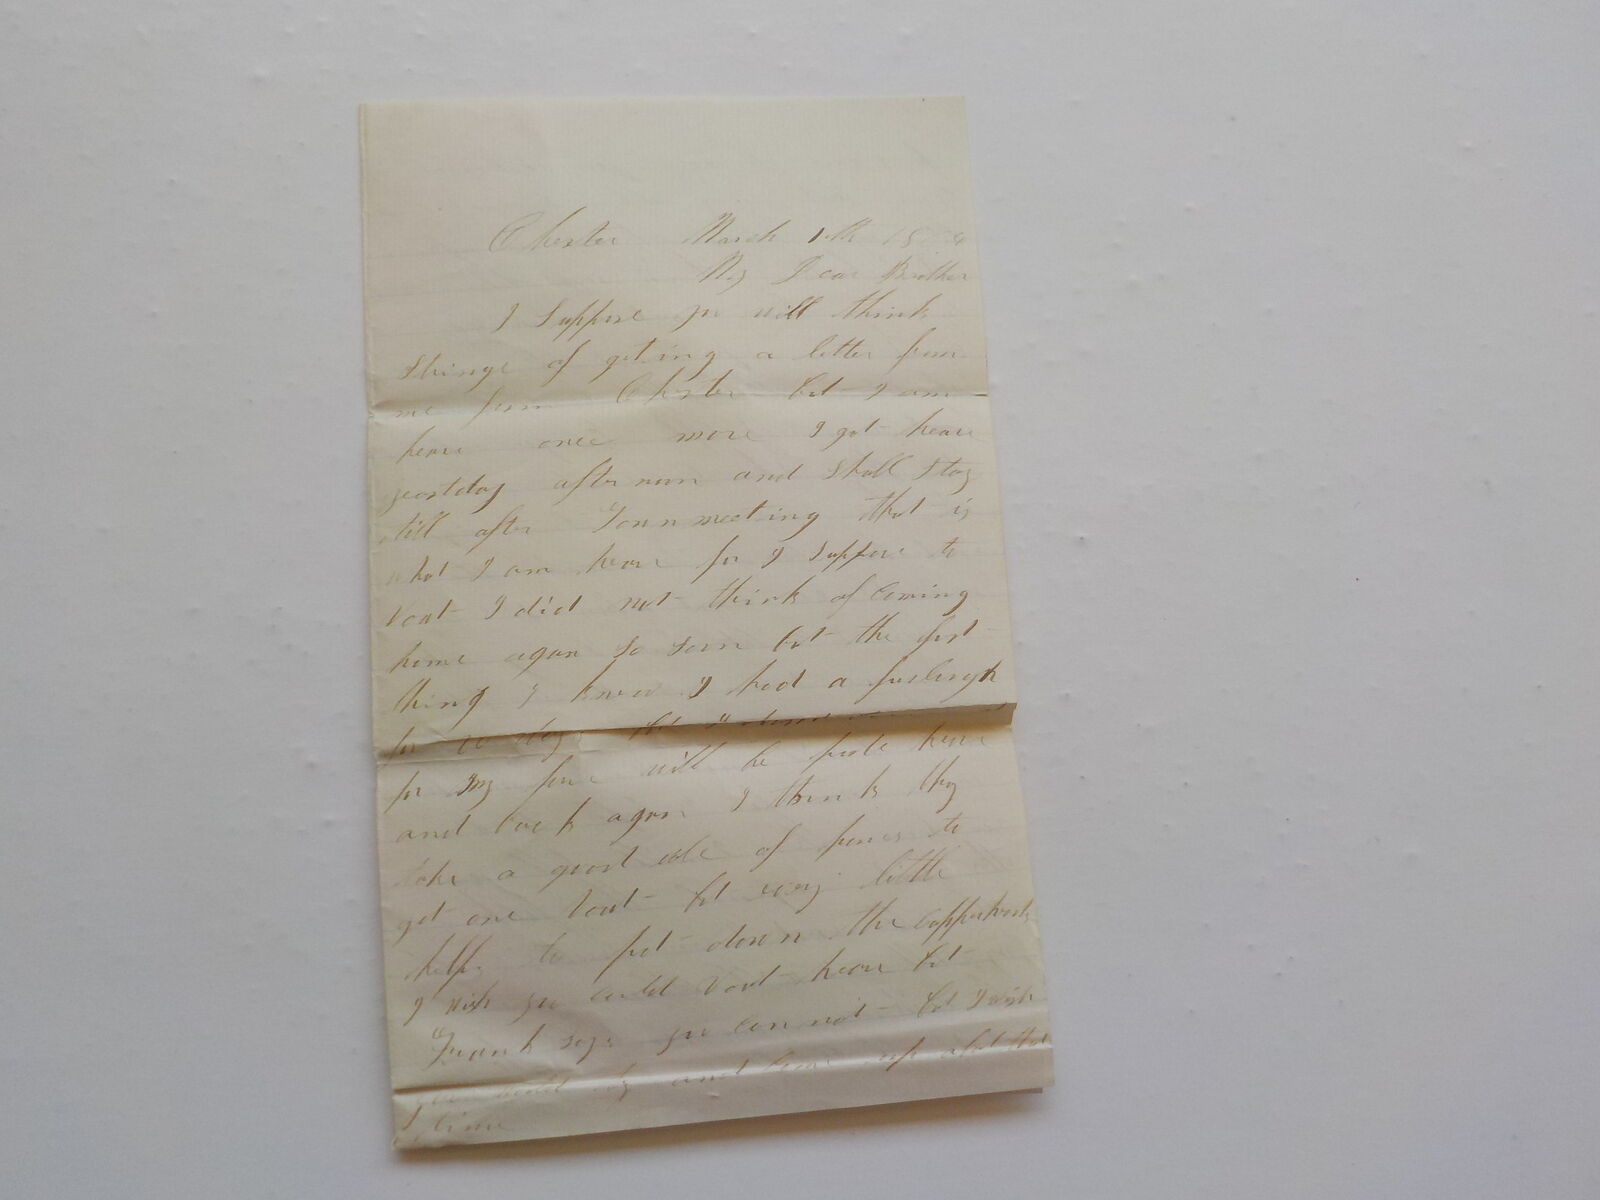 Chester March 1
My Dear Brother
I Suppose you will think
stringe of geting a letter from
me from Chester but I am
heare once more I got heare
yeastday after noon and Shall Stay
till after Town meeting that is
what I am heare for I Suppose to
Voat I did not think of Coming
home again So soon but the first
thing I knew I had a furlough
for 10 days But I
for my fare will be pade heare
and back again I think they
take a good dele of panes to
get one Voat but every little
help. to put down the
I wish you could Voat heare but
Frank says you can not but I wish
you would try and Come up about that
time